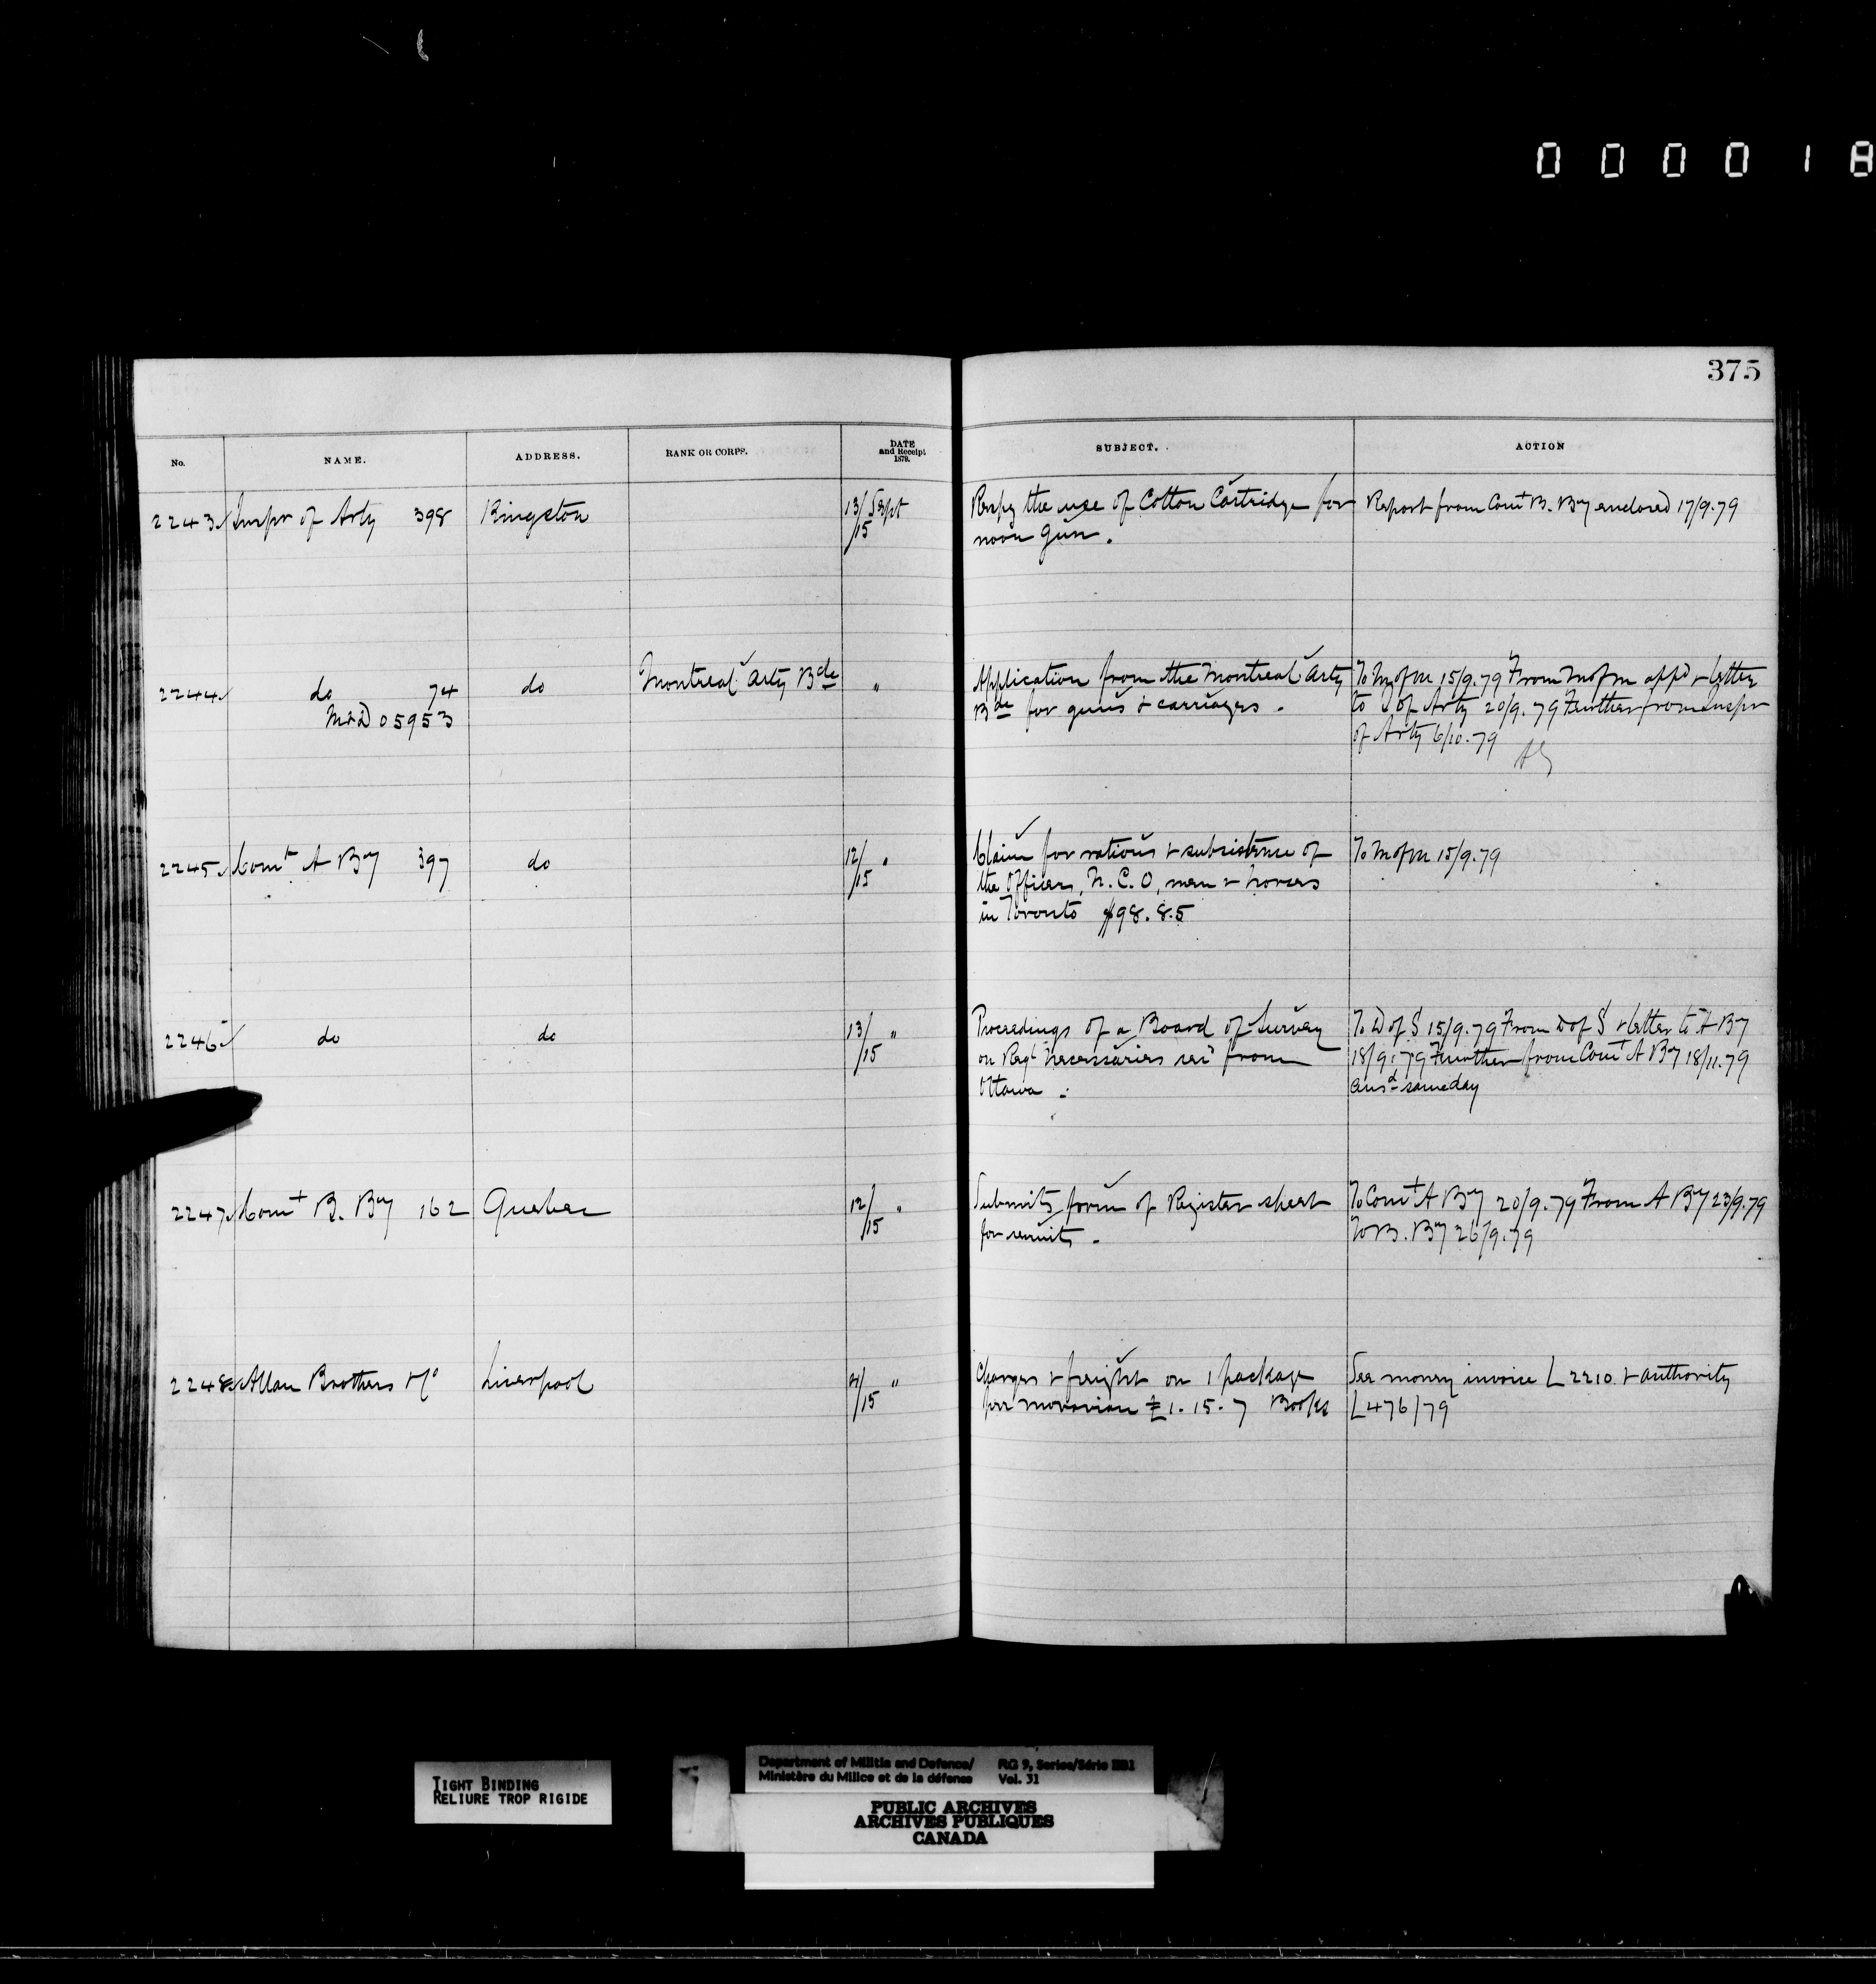 000018
375
No. NAME. ADDRESS. RANK OR CORPS. DATE and Receipt 1879. SUBJECT. ACTION
2243 Inspr of Arty 398 Kingston 13/15 Sept Respg the use of Cotton Cartridge for Report from Comt B. By enclosed 17/9.79
noon gun.
2244 do 74 do Montreal Arty Bde " Application from the Montreal Arty To M of M 15/9.79 From M of M appd & letter
M&D 05953 Bde for guns & carriages. to I of Arty 20/9.79 Further from Inspr
of Arty 6/10.79
2245 Comt A By 397 do 12/15 " Claim for rations & subsistence of To M of M 15/9.79
the Officers, N.C.O, men & horses
in Toronto $98.85
2246 do do 13/15 " Proceedings of a Board of Survey To D of S 15/9.79 From D of S & letter to A By
on Regl necessaries recd from 18/9.79 Further from Comt A By 18/11.79
Ottawa. ansd same day
2247 Comt B. By 162 Quebec 12/15 " Submits form of Register sheet To Comt A By 20/9.79 From A By 23/9.79
for recruits. To B. By 26/9.79
2248 Allan Brothers & Co Liverpool /15 " Charges & freight on 1 package See money invoice L 2210 & authority
per Moravian £1.15.7 Books L476/79
TIGHT BINDING
RELIURE TROP RIGIDE
Department of Militia and Defence/ RG 9, Series/Série IIB1
Ministère du Milice et de la défense Vol. 31
PUBLIC ARCHIVES
ARCHIVES PUBLIQUES
CANADA